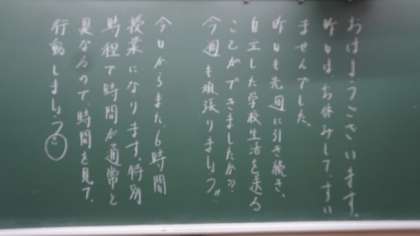 おはようございます。
昨日はお休みして、すい
ませんでした。
昨日も先週に引き続き、
自立した学校生活を送る
ことができましたか？
今週も頑張りましょう。
今日からまた6時間
授業になります。特別
時程で時間が通常と
異なるので、時間を見て、
行動しましょう。